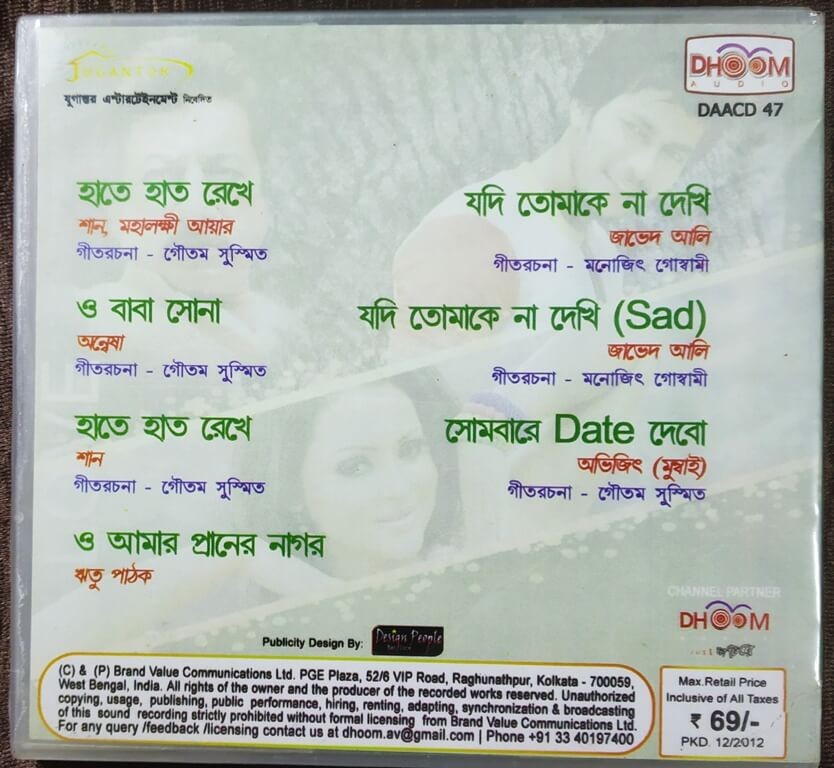 JUGANTOR
যুগান্তর এন্টারটেইনমেন্ট নিবেদিত
DHOOM
AUDIO
DAACD 47
হাতে হাত রেখে
শান, মহালক্ষ্মী আয়ার
গীতরচনা - গৌতম সুস্মিত
ও বাবা সোনা
অন্বেষা
গীতরচনা - গৌতম সুস্মিত
হাতে হাত রেখে
শান
গীতরচনা - গৌতম সুস্মিত
ও আমার প্রানের নাগর
ঋতু পাঠক
যদি তোমাকে না দেখি
জাভেদ আলি
গীতরচনা - মনোজিৎ গোস্বামী
যদি তোমাকে না দেখি (Sad)
জাভেদ আলি
গীতরচনা - মনোজিৎ গোস্বামী
সোমবারে Date দেবো
অভিজিৎ (মুম্বাই)
গীতরচনা - গৌতম সুস্মিত
CHANNEL PARTNER
DHOOM
Publicity Design By:
Design People
(C) & (P) Brand Value Communications Ltd. PGE Plaza, 52/6 VIP Road, Raghunathpur, Kolkata - 700059,
West Bengal, India. All rights of the owner and the producer of the recorded works reserved. Unauthorized
copying, usage, publishing, public performance, hiring, renting, adapting, synchronization & broadcasting
of this sound recording strictly prohibited without formal licensing from Brand Value Communications Ltd.
For any query /feedback /licensing contact us at dhoom.av@gmail.com | Phone +91 33 40197400
Max.Retail Price
Inclusive of All Taxes
₹ 69/-
PKD. 12/2012